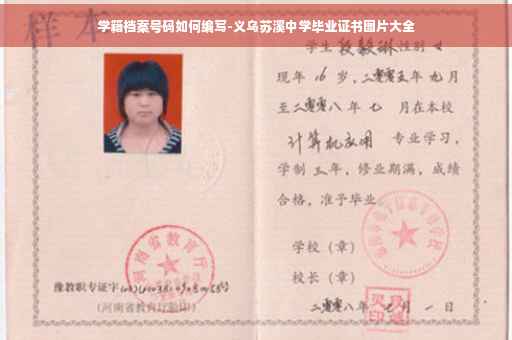 学籍档案号码如何编写-义乌苏溪中学毕业证书图片大全
样本
学生段毅琳性别女
现年16岁,二零零五年九月
至二零零八年七 月在本校
计算机应用 专业学习,
学制三年,修业期满,成绩
合格,准予毕业
学校(章)
校长(章)
二零零八年七月一日
河南省教育厅
豫教职专证字
(河南省教育厅验印)